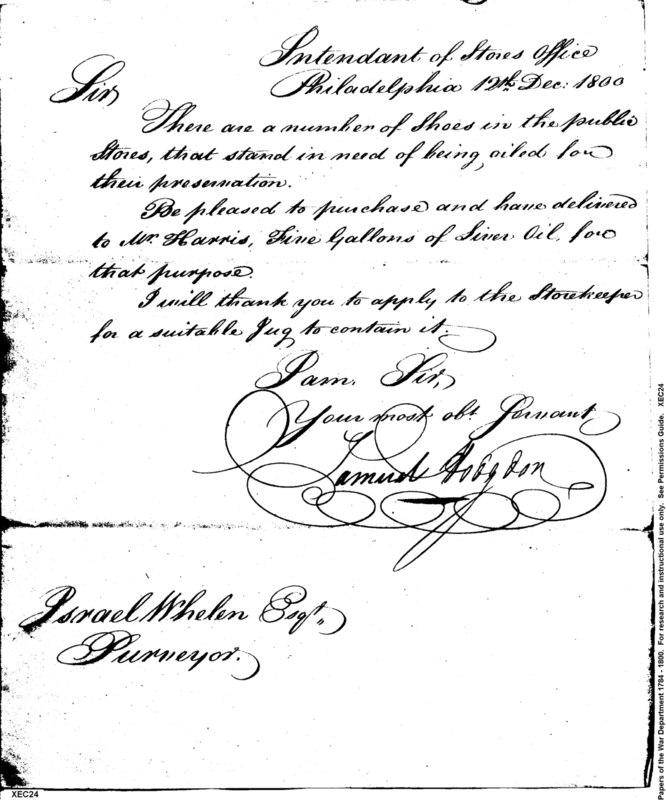 Intendant of Stores Office
Philadelphia 12th Dec: 1800
Sir
There are a number of Shoes in the public
Stores, that stand in need of being oiled for
their preservation.
Be pleased to purchase and have delivered
to Mr. Harris, Five Gallons of Liver Oil, for
that purpose.
I will thank you to apply to the Storekeeper
for a suitable Jug to contain it.
I am, Sir,
Your most obt. Servant,
Samuel Hodgdon
Israel Whelen Esqr.,
Purveyor.
XEC24
Papers of the War Department 1784 - 1800. For research and instructional use only. See Permissions Guide. XEC24